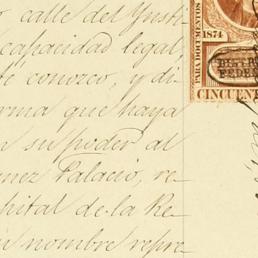 calle del Insti-
capacidad legal,
conozco, y di-
orma que haya
su poder al
mez Palacio, re-
pital de la Re-
nombre repre-
PARA DOCUMENTOS
1874
FEDER
CINCUENT